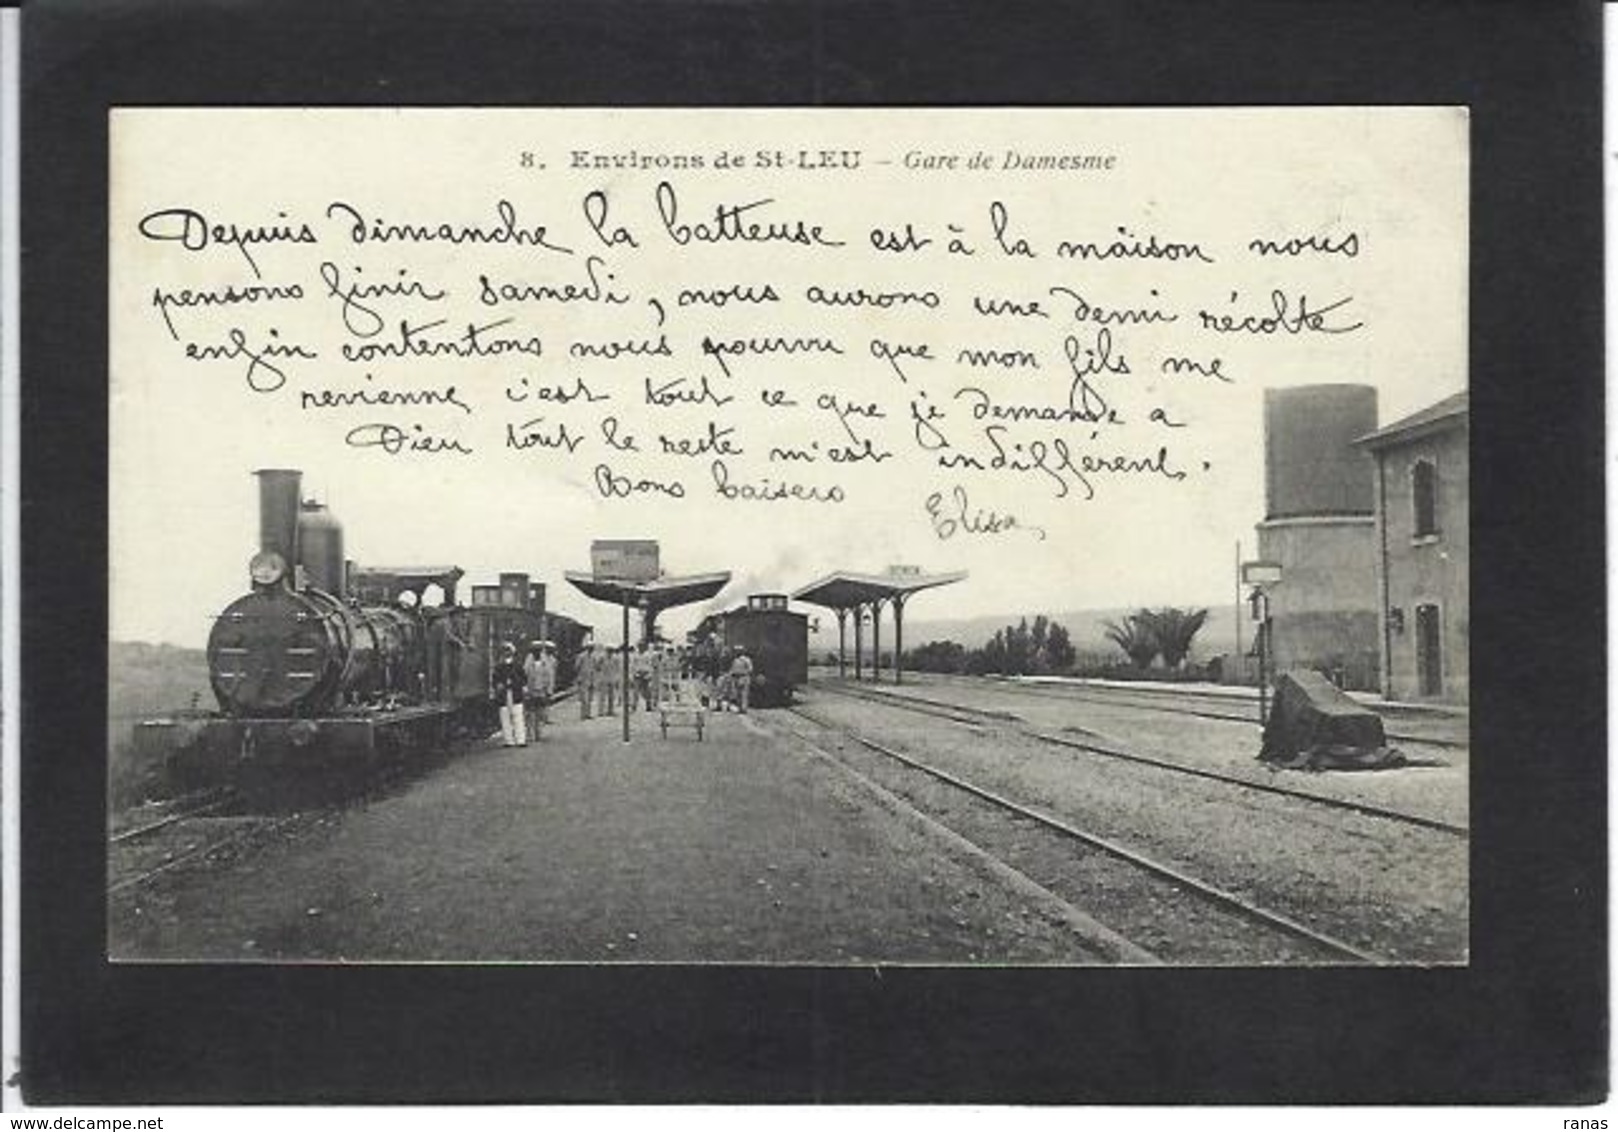 8. Environs de St-LEU – Gare de Damesme
Depuis dimanche la batteuse est à la maison nous
pensons finir samedi, nous aurons une demi récolte
enfin contentons nous pourvu que mon fils me
revienne, c'est tout ce que je demande a
Dieu tout le reste m'est indifférent.
Bons baisers Elisa
ranas